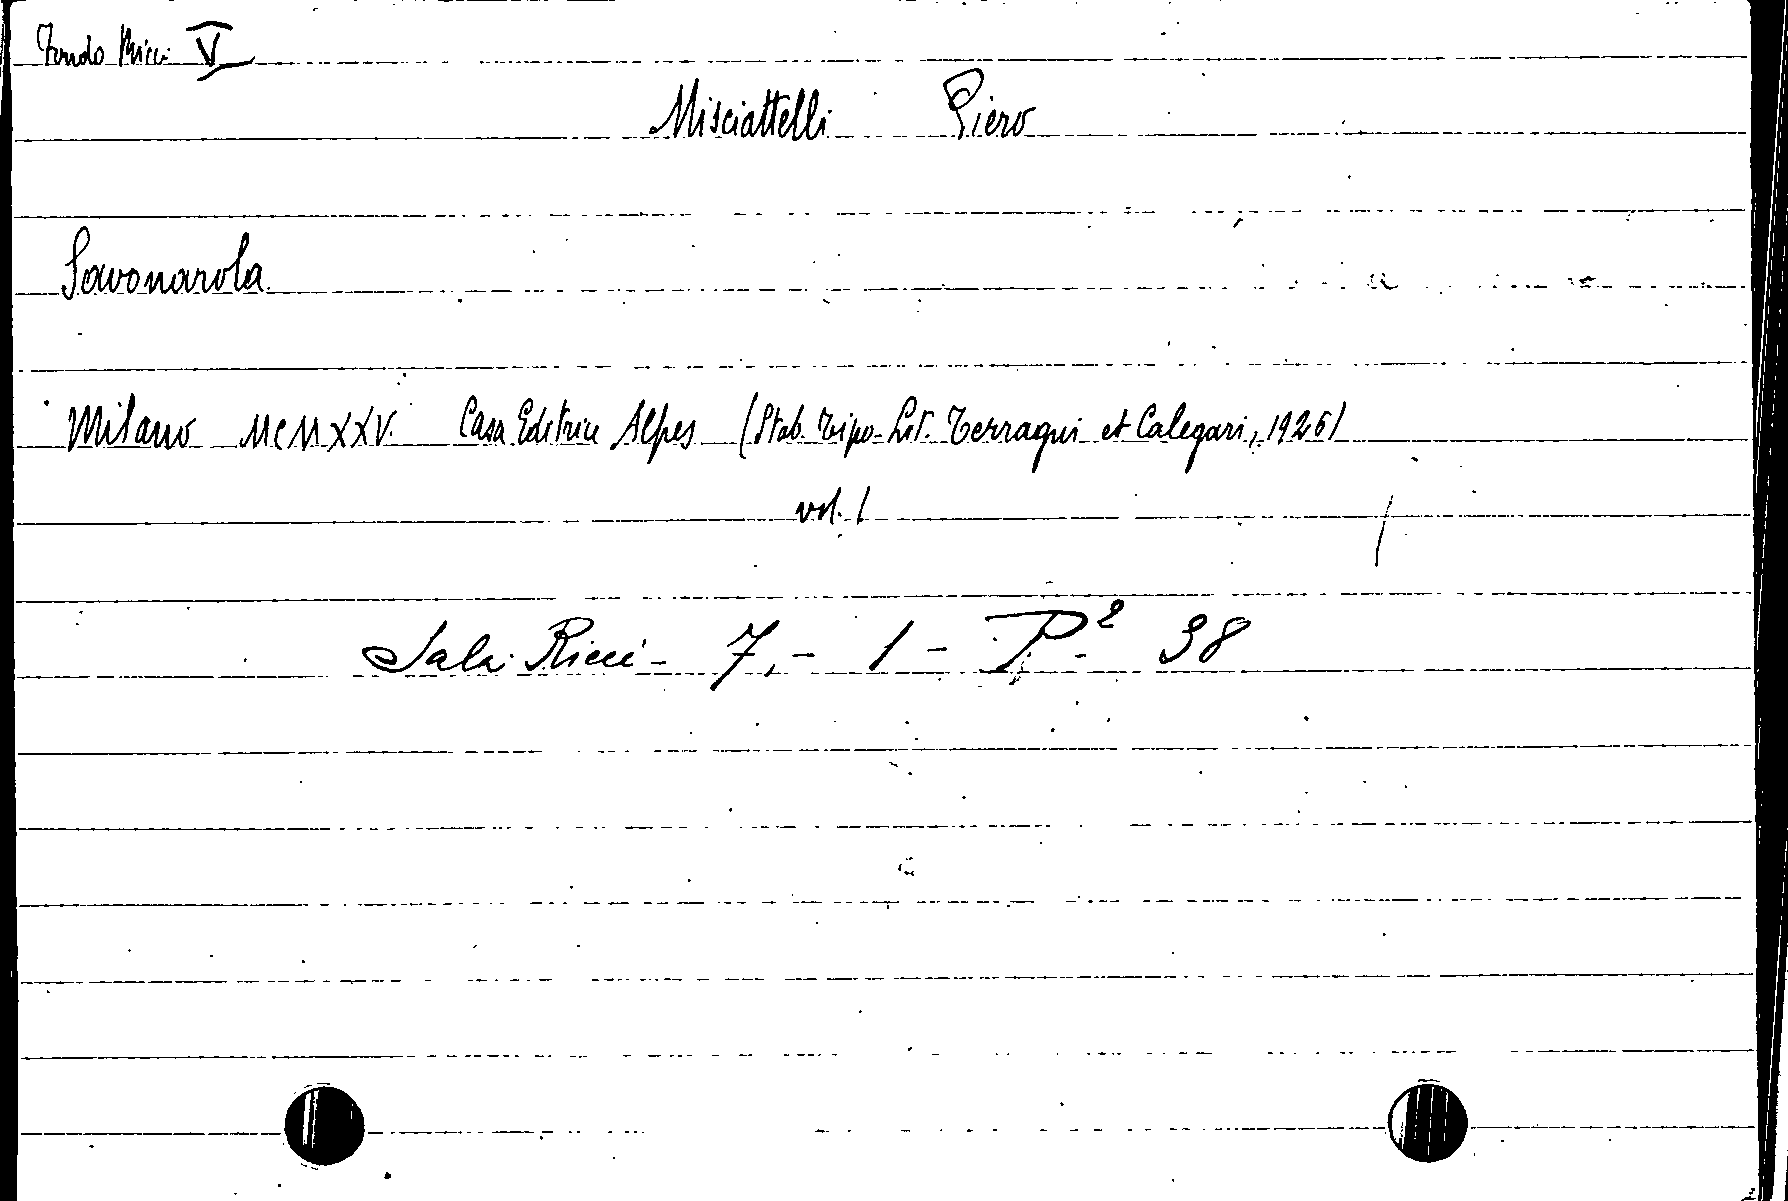 Fondo Ricci V
Misciattelli Piero
Savonarola
Milano MCMXXV. Casa Editrice Alpes (Stab. Tipo-Lit. Terragni et Calegari, 1926)
vol. 1
Sala Ricci - 7. - 1 - P.² 38